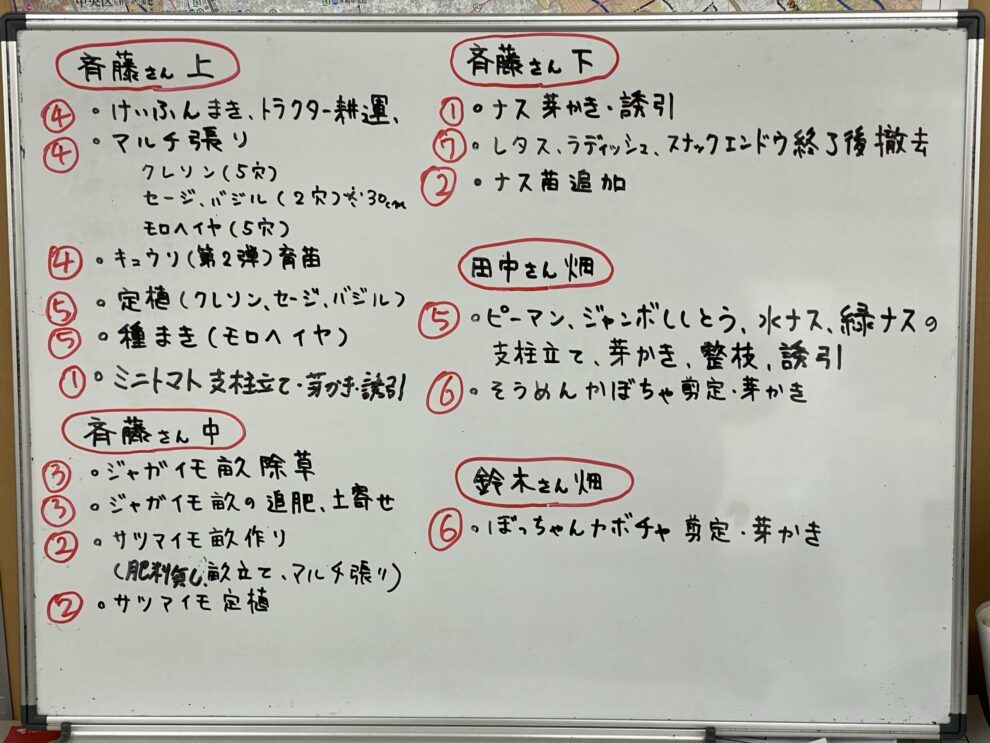 中央区
斉藤さん 上
④ ・けいふんまき、トラクター耕運、
④ ・マルチ張り
クレソン(5穴)
セージ、バジル(2穴)※30cm
モロヘイヤ(5穴)
④ ・キュウリ(第2弾)育苗
⑤ ・定植(クレソン、セージ、バジル)
⑤ ・種まき(モロヘイヤ)
① ・ミニトマト支柱立て・芽かき・誘引
斉藤さん 中
③ ・ジャガイモ畝除草
③ ・ジャガイモ畝の追肥、土寄せ
② ・サツマイモ畝作り
(肥料無し、畝立て、マルチ張り)
② ・サツマイモ定植
斉藤さん 下
① ・ナス芽かき・誘引
⑦ ・レタス、ラディッシュ、スナックエンドウ終了後撤去
② ・ナス苗追加
田中さん畑
⑤ ・ピーマン、ジャンボししとう、水ナス、緑ナスの
支柱立て、芽かき、整枝、誘引
⑥ ・そうめんかぼちゃ剪定・芽かき
鈴木さん畑
⑥ ・ぼっちゃんカボチャ剪定・芽かき